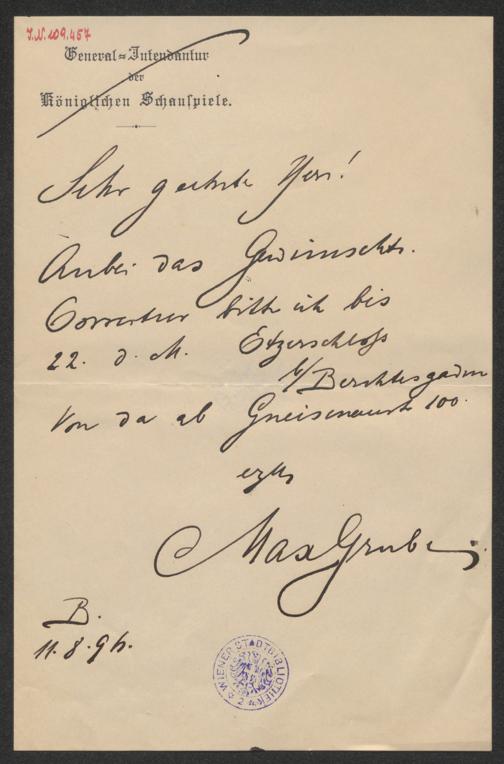 I.N. 109.457
General=Intendantur
der
Königlichen Schauspiele.
Sehr geehrte Herr!
Anbei das Gewünschte.
Correctur bitte ich bis
22. d. M. Etzerschloss
b/Berchtesgaden
Von da ab Gneisenaustr 100.
Max Grube
B.
11.8.96.
WIENER STADTBIBLIOTHEK